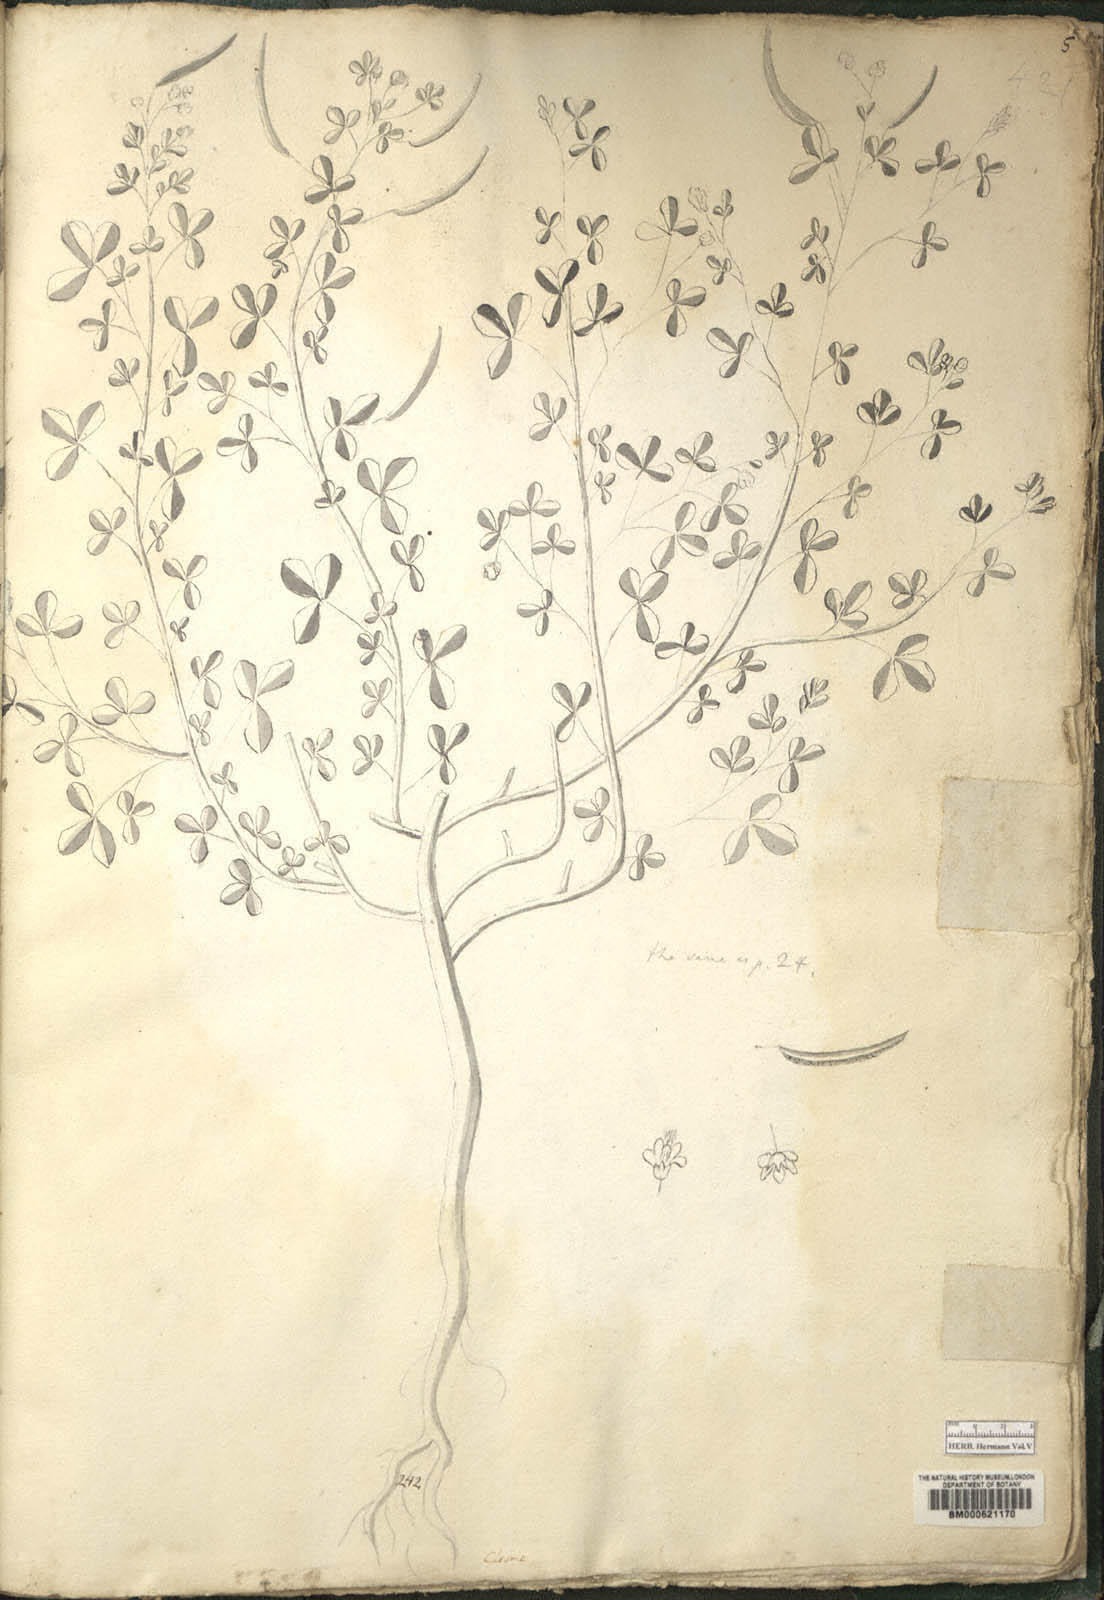 5
421
the same as p. 24.
242
Cleome
HERB. Hermann Vol.V
THE NATURAL HISTORY MUSEUM, LONDON
DEPARTMENT OF BOTANY
BM000621170